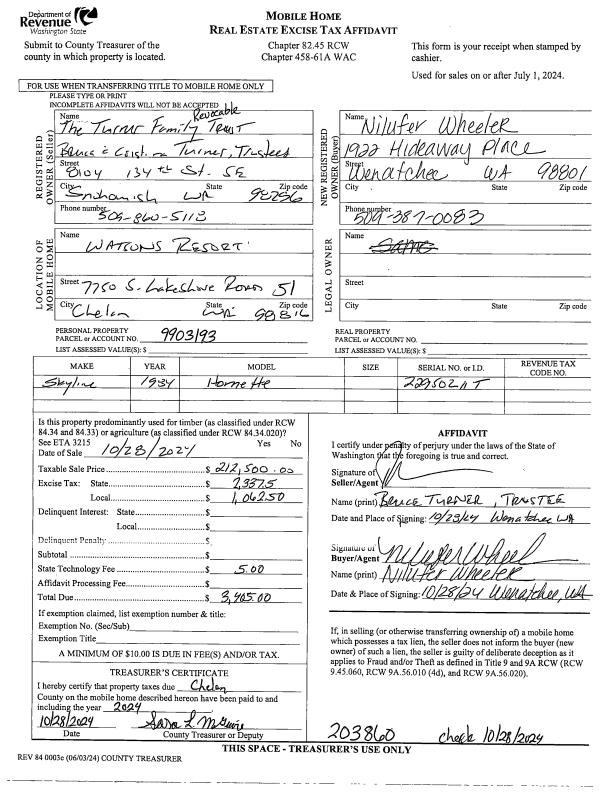 Department of
Revenue
Washington State
Submit to County Treasurer of the
county in which property is located.
MOBILE HOME
REAL ESTATE EXCISE TAX AFFIDAVIT
Chapter 82.45 RCW
Chapter 458-61A WAC
This form is your receipt when stamped by
cashier.
Used for sales on or after July 1, 2024.
FOR USE WHEN TRANSFERRING TITLE TO MOBILE HOME ONLY
PLEASE TYPE OR PRINT
INCOMPLETE AFFIDAVITS WILL NOT BE ACCEPTED
REGISTERED
OWNER (Seller)
Name
Revocable
The Turner Family Trust
Bruce & Turner, Trustees
Street
8104 134th St. SE
City State Zip code
Snohomish WA 98296
Phone number
509-860-5113
NEW REGISTERED
OWNER (Buyer)
Name
Nilufer Wheeler
1922 Hideaway Place
Street
Wenatchee WA 98801
City State Zip code
Phone number
509-387-0083
LOCATION OF
MOBILE HOME
Name
WATSONS RESORT
Street 7750 S. Lakeshore Road 51
City State Zip code
Chelan WA 98816
LEGAL OWNER
Name
Same
Street
City State Zip code
PERSONAL PROPERTY
PARCEL or ACCOUNT NO. 9903193
LIST ASSESSED VALUE(S): $
REAL PROPERTY
PARCEL or ACCOUNT NO.
LIST ASSESSED VALUE(S): $
MAKE YEAR MODEL SIZE SERIAL NO. or I.D. REVENUE TAX
CODE NO.
Skyline 1984 Hornette
Is this property predominantly used for timber (as classified under RCW
84.34 and 84.33) or agriculture (as classified under RCW 84.34.020)?
See ETA 3215 Yes No
Date of Sale 10/28/2024
Taxable Sale Price $ 212,500.00
Excise Tax: State $ 2,337.5
Local $ 1,062.50
Delinquent Interest: State $
Local $
Delinquent Penalty $
Subtotal $
State Technology Fee $ 5.00
Affidavit Processing Fee $
Total Due $ 3,405.00
If exemption claimed, list exemption number & title:
Exemption No. (Sec/Sub)
Exemption Title
A MINIMUM OF $10.00 IS DUE IN FEE(S) AND/OR TAX.
TREASURER'S CERTIFICATE
I hereby certify that property taxes due Chelan
County on the mobile home described hereon have been paid to and
including the year 2024
10/28/2024 Sara L McGuire
Date County Treasurer or Deputy
AFFIDAVIT
I certify under penalty of perjury under the laws of the State of
Washington that the foregoing is true and correct.
Signature of
Seller/Agent
Name (print) BRUCE TURNER, TRUSTEE
Date and Place of Signing: 10/23/24 Wenatchee WA
Signature of
Buyer/Agent Nilufer Wheel
Name (print) Nilufer Wheeler
Date & Place of Signing: 10/28/24 Wenatchee, WA
If, in selling (or otherwise transferring ownership of) a mobile home
which possesses a tax lien, the seller does not inform the buyer (new
owner) of such a lien, the seller is guilty of deliberate deception as it
applies to Fraud and/or Theft as defined in Title 9 and 9A RCW (RCW
9.45.060, RCW 9A.56.010 (4d), and RCW 9A.56.020).
203860 check 10/28/2024
THIS SPACE - TREASURER'S USE ONLY
REV 84 0003e (06/03/24) COUNTY TREASURER